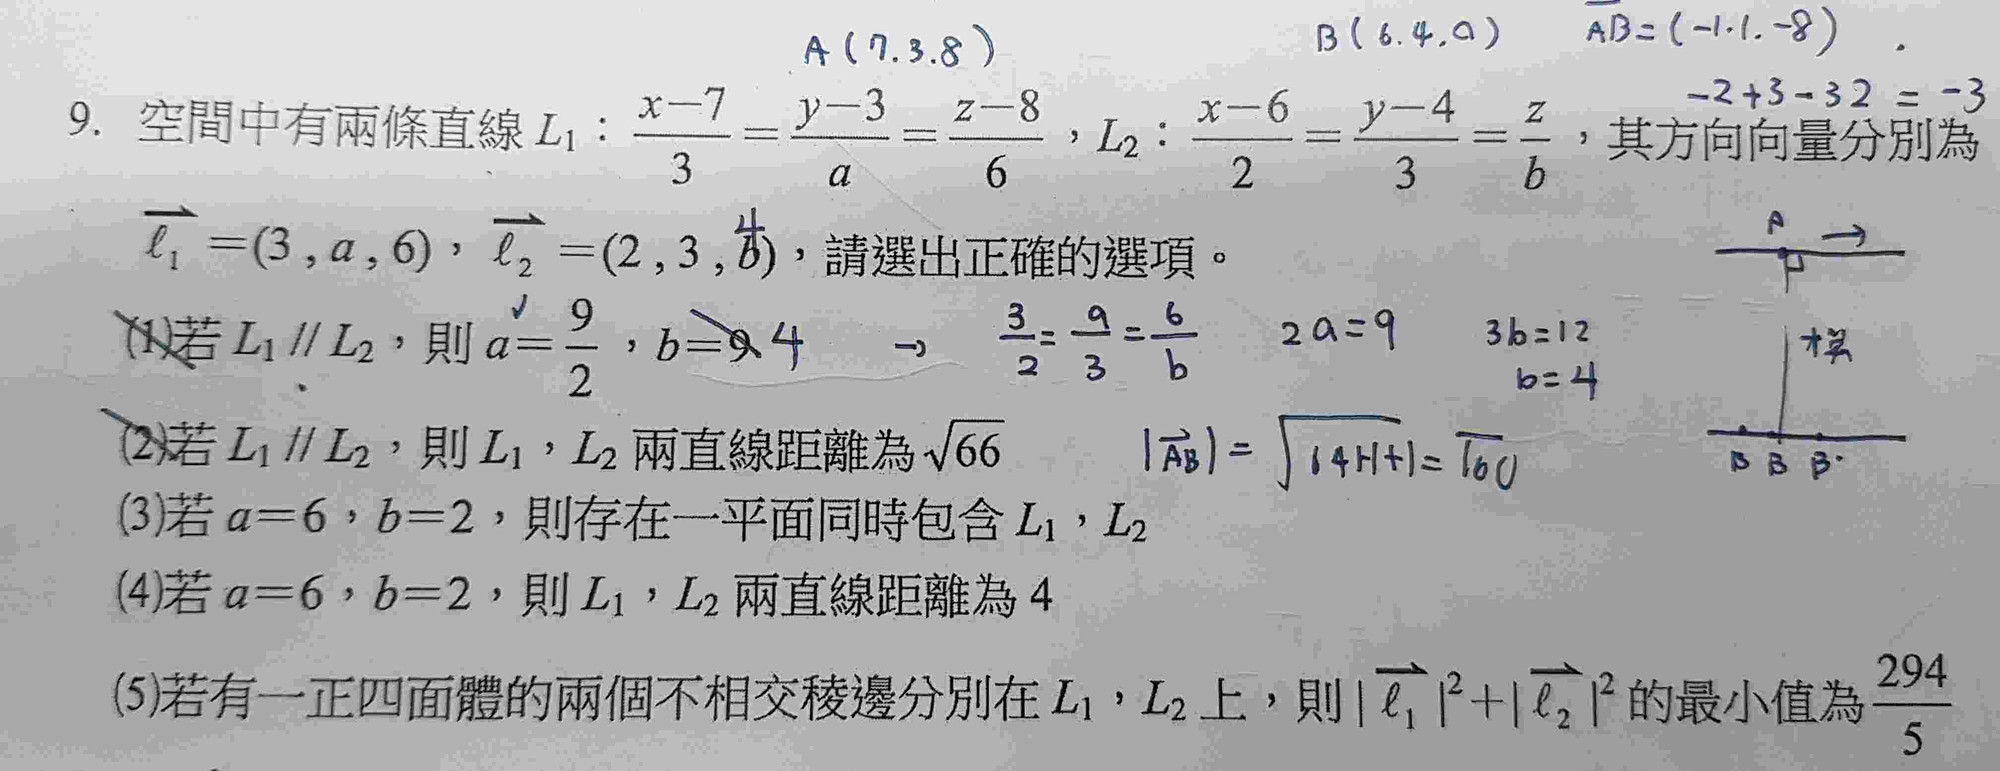 A(7.3.8) B(6.4.0) AB=(-1.1.-8)
-2+3-32 = -3
9. 空間中有兩條直線 L₁：(x−7)/3 = (y−3)/a = (z−8)/6，L₂：(x−6)/2 = (y−4)/3 = z/b，其方向向量分別為
ℓ₁ =(3 , a , 6)，ℓ₂ =(2 , 3 , b)，請選出正確的選項。 4 A
(1)若 L₁ // L₂，則 a = 9/2，b=9 4 → 3/2 = a/3 = 6/b 2a=9 3b=12
b=4
(2)若 L₁ // L₂，則 L₁，L₂ 兩直線距離為 √66 |AB| = √64+1+1 = √66 B B B
(3)若 a=6，b=2，則存在一平面同時包含 L₁，L₂
(4)若 a=6，b=2，則 L₁，L₂ 兩直線距離為 4
(5)若有一正四面體的兩個不相交稜邊分別在 L₁，L₂ 上，則 | ℓ₁ |²+| ℓ₂ |² 的最小值為 294/5